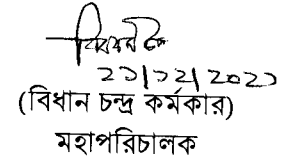 ২১/১২/২০২১
(বিধান চন্দ্র কর্মকার)
মহাপরিচালক